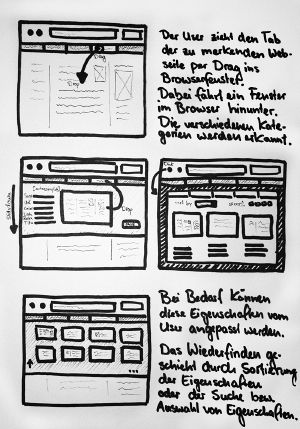 Der User zieht den Tab
der zu merkenden Web-
seite per Drag ins
Browserfenster.
Dabei fährt ein Fenster
im Browser hinunter.
Die verschiedenen Kate-
gorien werden erkannt.
Drag
Drop
Drop
Bei Bedarf können
diese Eigenschaften vom
User angepasst werden.
Das Wiederfinden ge-
schieht durch Sortierung
der Eigenschaften
oder der Suche bzw.
Auswahl von Eigenschaften.